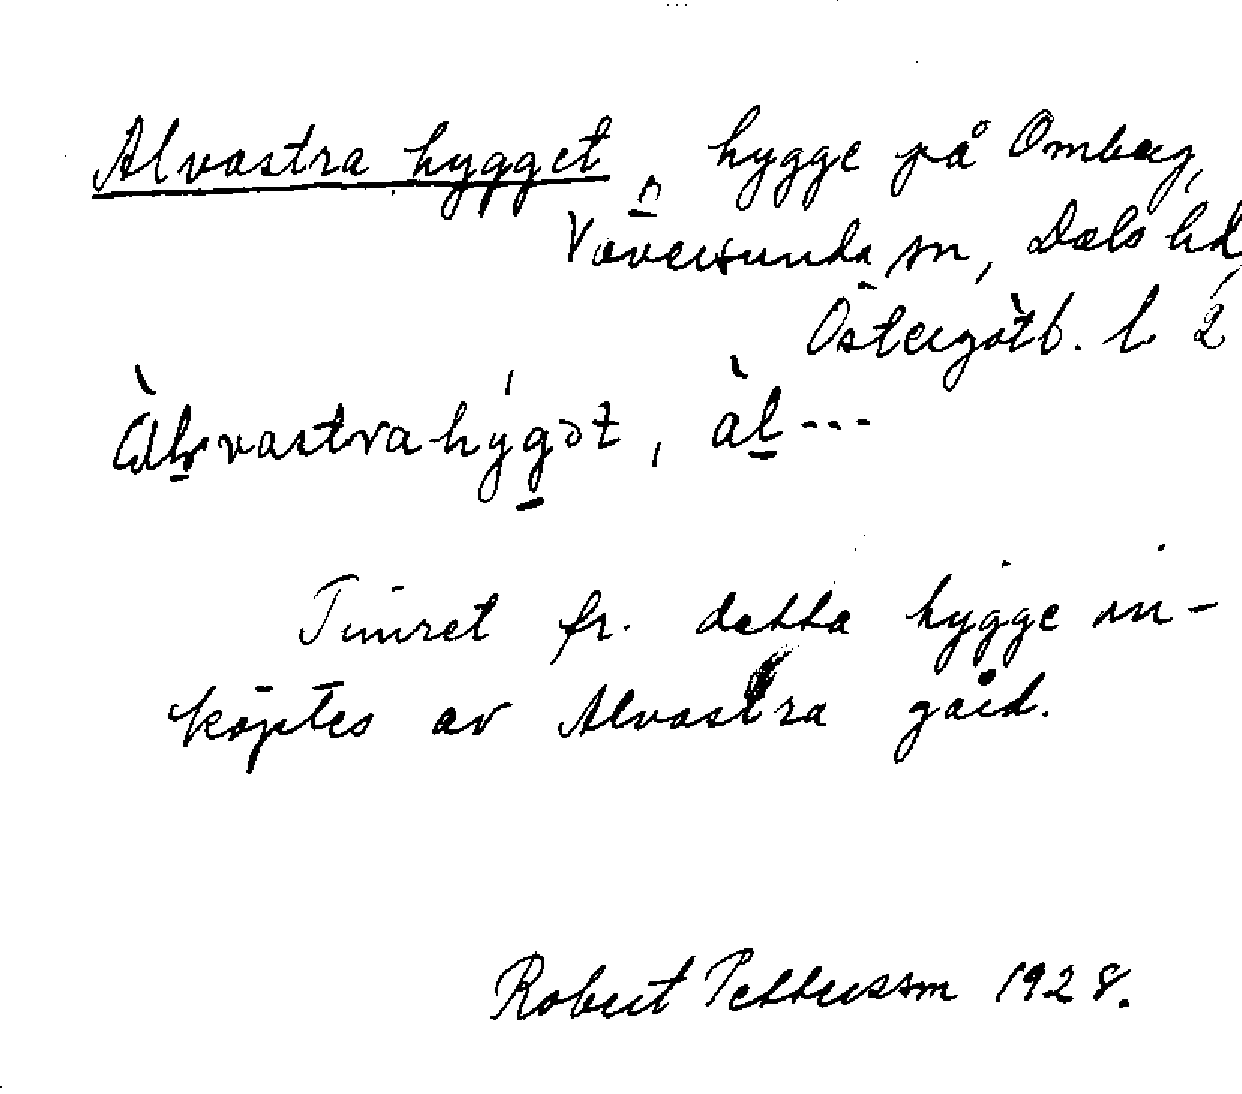 Alvastra hygget, hygge på Omberg,
Väversunda sn, Dals hd,
Östergötl. l 2
àlvastrahýgət, àl---
Timret fr. detta hygge in-
köptes av Alvastra gård.
Robert Pettersson 1928.